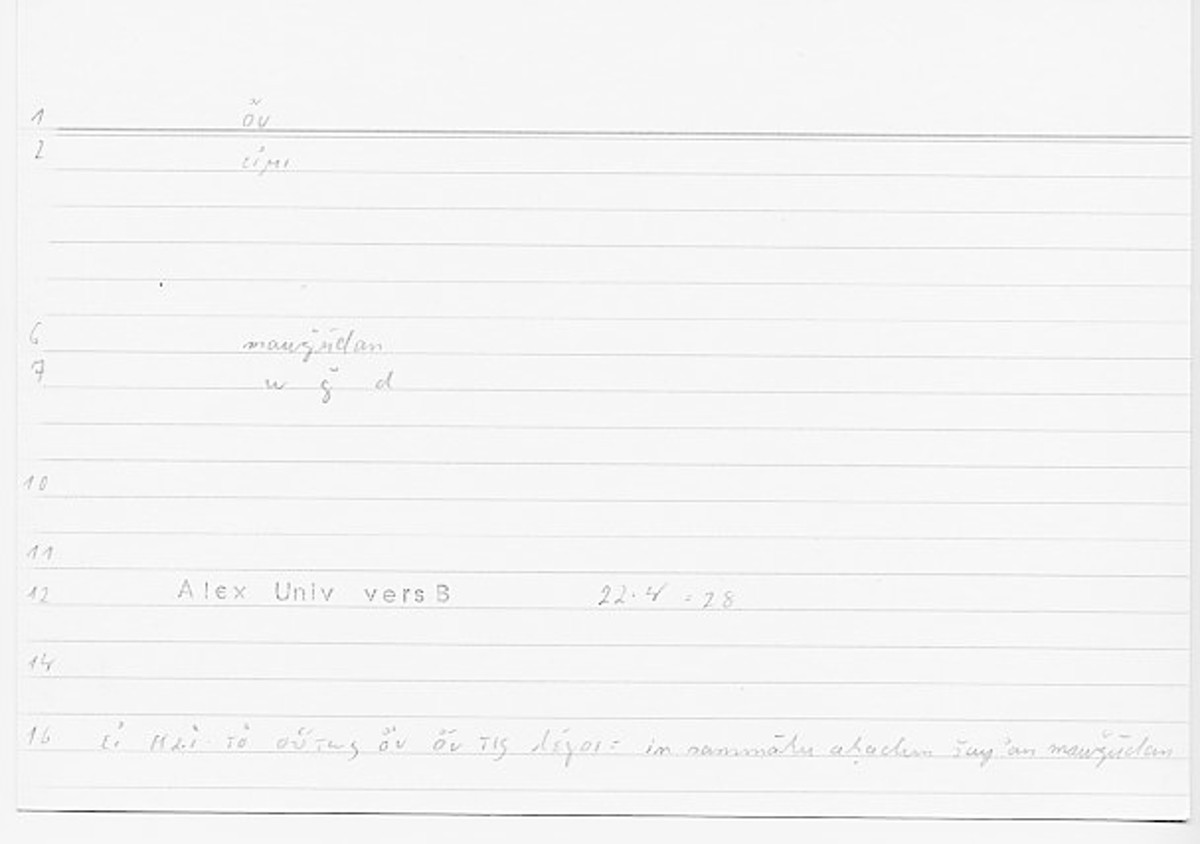 1 ὄν
2 εἰμι
6 mawǧūdan
7 w ǧ d
10
11
12 Alex Univ vers B 22.4 = 28
14
16 εἰ καὶ τὸ οὕτως ὂν ὄν τις λέγοι = in sammāhu aḥadun šayʾan mawǧūdan